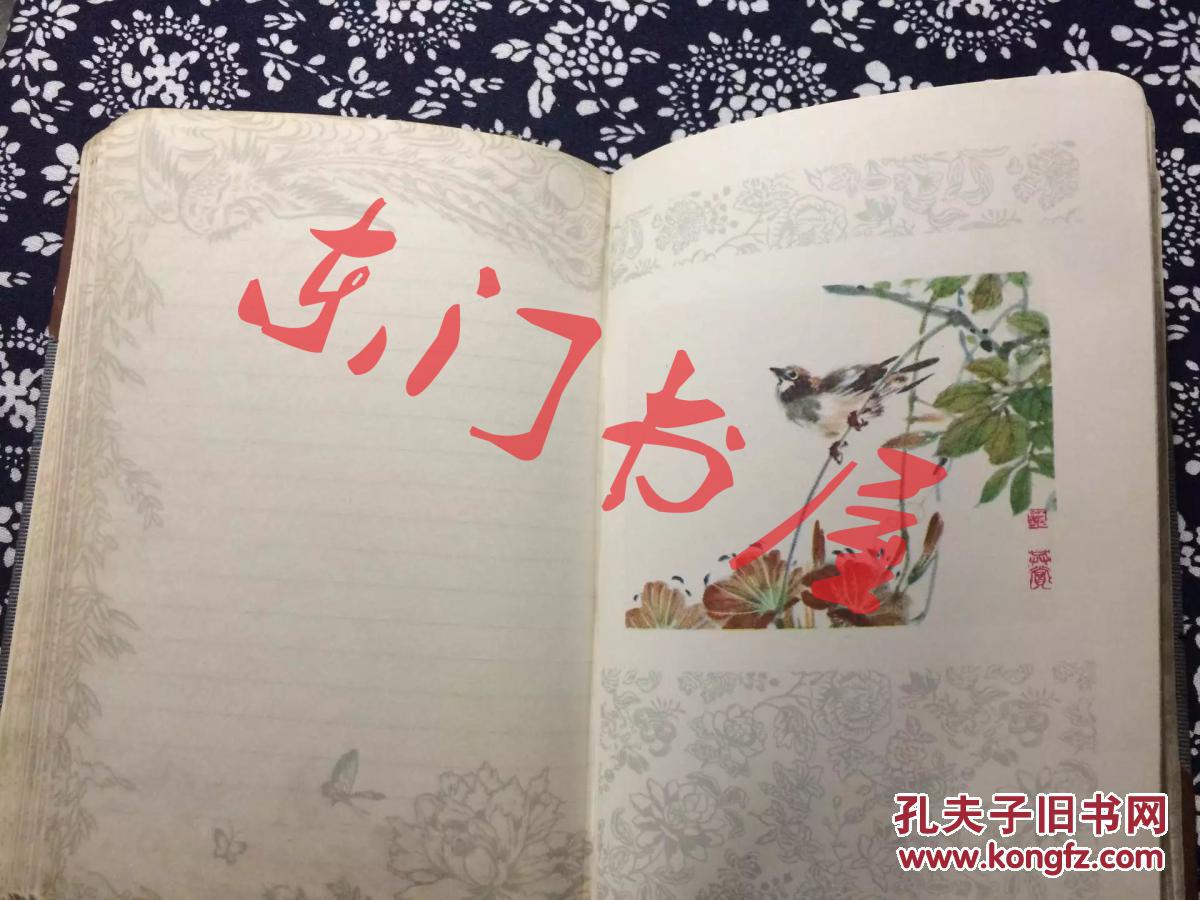 东门书屋
孔夫子旧书网
www.kongfz.com